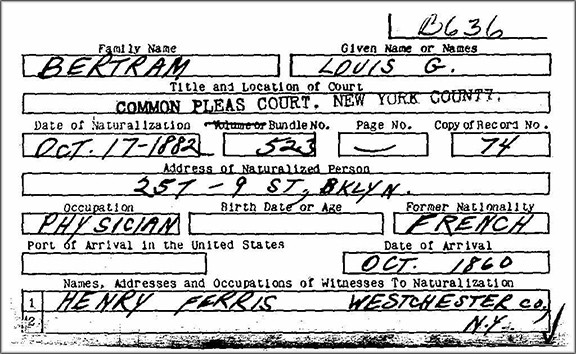 B636
Family Name Given Name or Names
BERTRAM LOUIS G.
Title and Location of Court
COMMON PLEAS COURT. NEW YORK COUNTY.
Date of Naturalization Volume or Bundle No. Page No. Copy of Record No.
OCT. 17-1882 523 — 74
Address of Naturalized Person
257 - 9 ST, BKLYN.
Occupation Birth Date or Age Former Nationality
PHYSICIAN FRENCH
Port of Arrival in the United States Date of Arrival
OCT. 1860
Names, Addresses and Occupations of Witnesses To Naturalization
1 HENRY FERRIS WESTCHESTER CO,
2 N.Y.